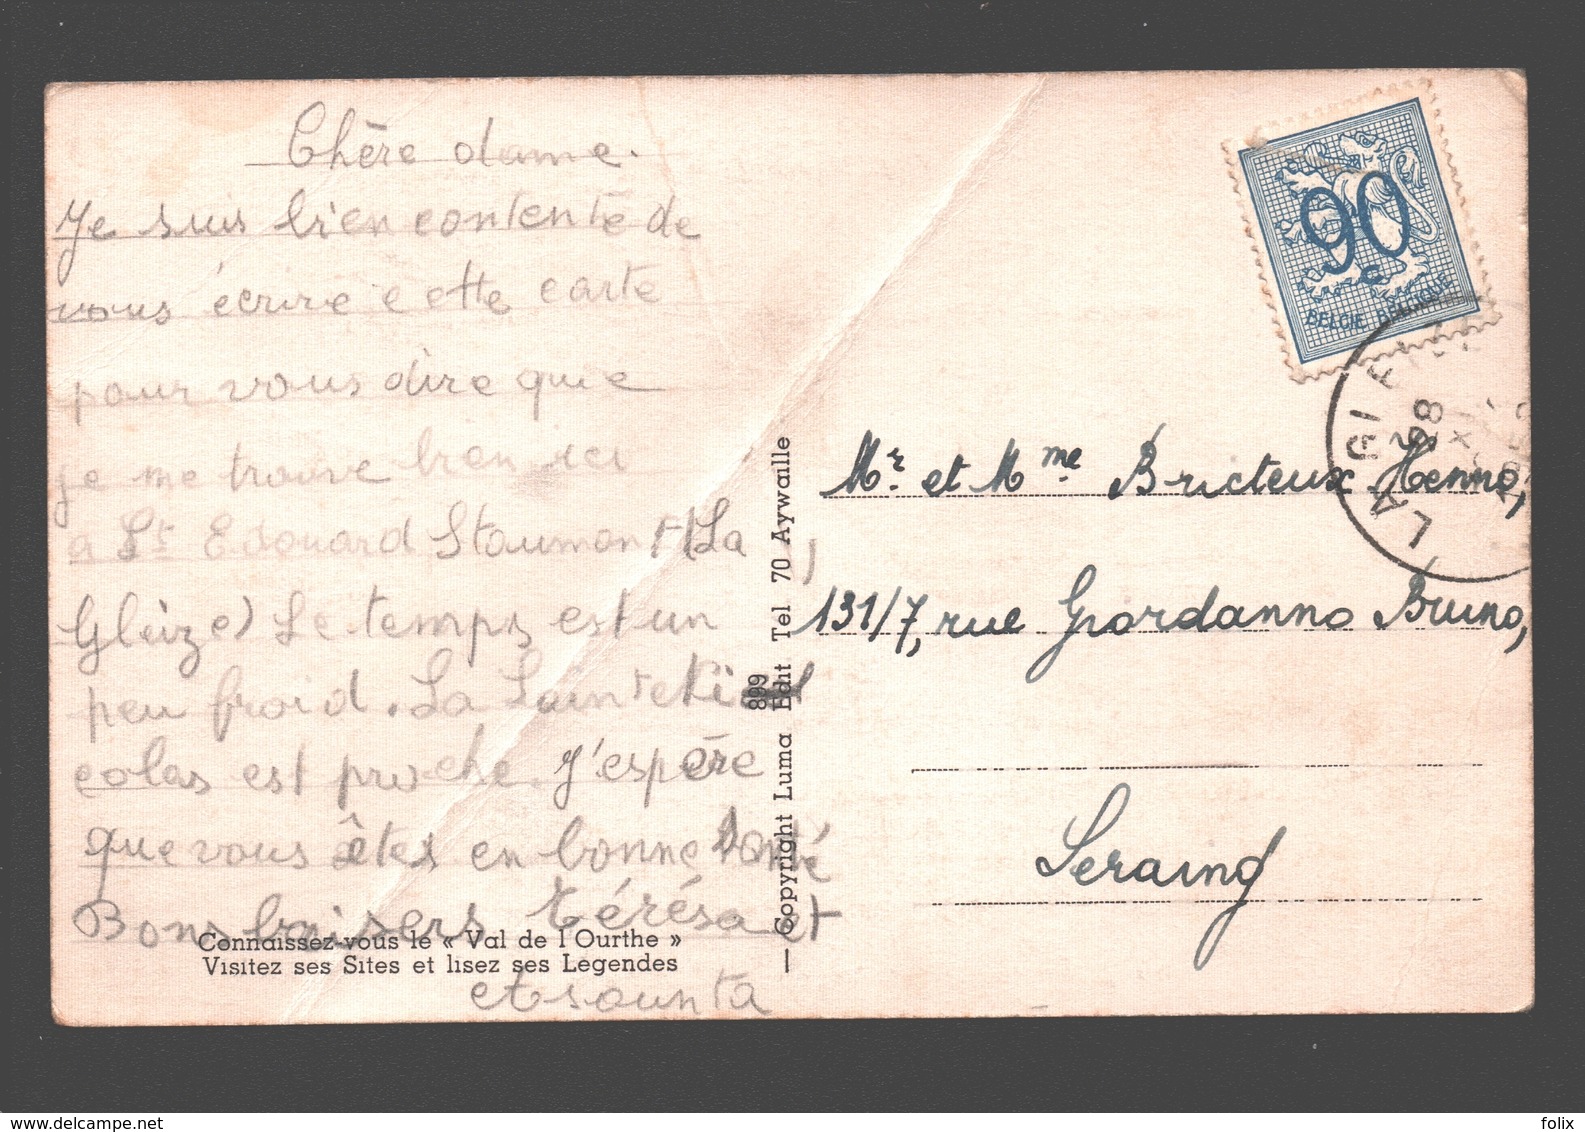 Chère dame.
Je suis bien contente de
vous écrire cette carte
pour vous dire que
je me trouve bien ici
a St Edouard Stoumont (La
Gleize) Le temps est un
peu froid. La Sainte Ni
colas est proche. J'espère
que vous êtes en bonne santé
Bons baisers térésa et
et
Connaissez-vous le « Val de l'Ourthe »
Visitez ses Sites et lisez ses Légendes
— Copyright Luma Edit Tel 70 Aywaille
899
90
c
BELGIE BELGIQUE
LA GI
28
Mr. et Mme. Bricteux Henno,
131/7, rue Giordanno Bruno,
Seraing
folix